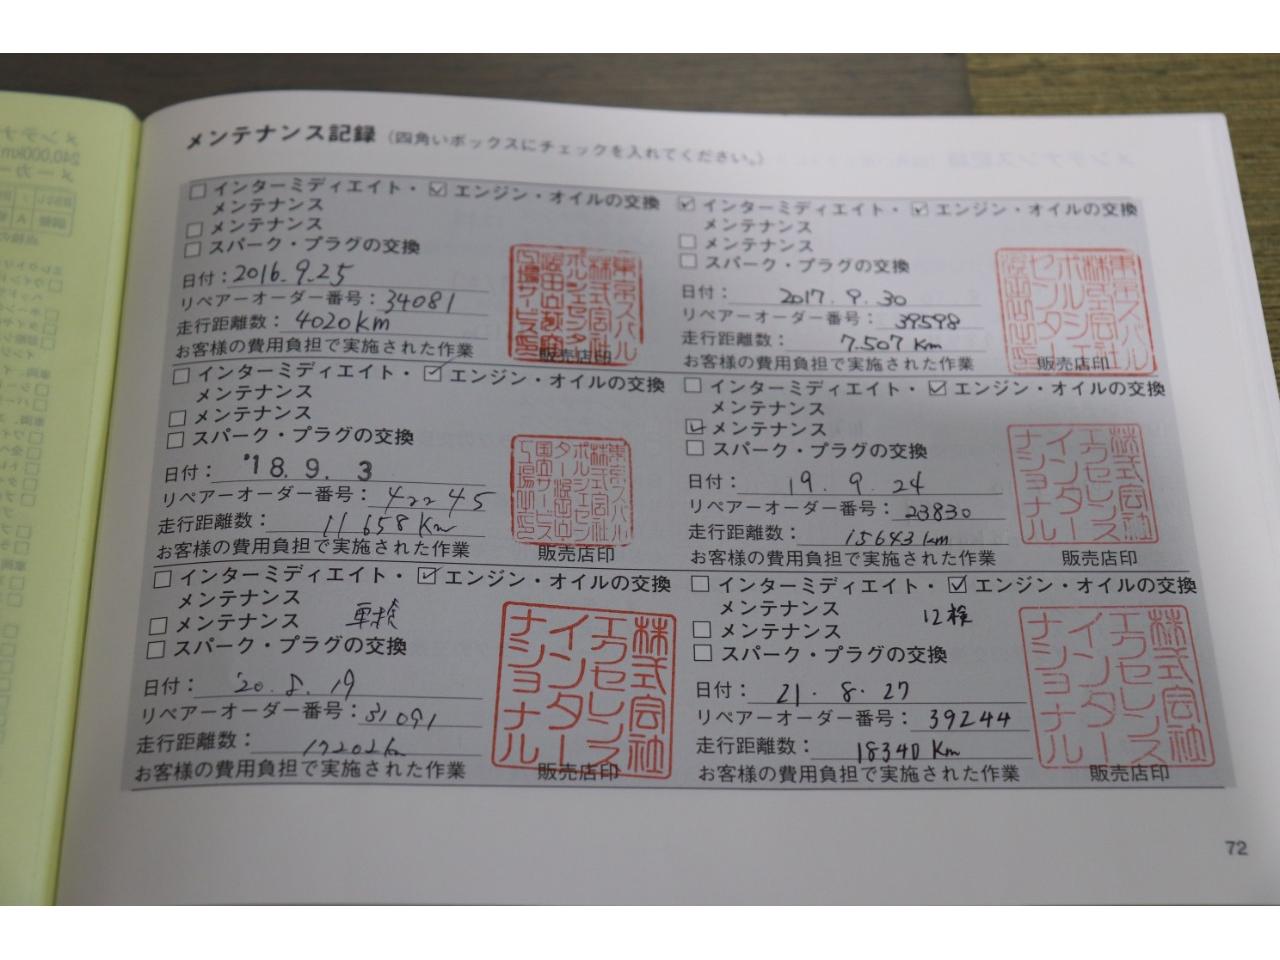 メンテナンス記録（四角いボックスにチェックを入れてください。）
インターミディエイト・ エンジン・オイルの交換
メンテナンス
メンテナンス
スパーク・プラグの交換
日付：2016.9.25
リペアーオーダー番号：34081
走行距離数：4020km
お客様の費用負担で実施された作業
販売店印
インターミディエイト・ エンジン・オイルの交換
メンテナンス
メンテナンス
スパーク・プラグの交換
日付： 2017.9.30
リペアーオーダー番号： 39598
走行距離数： 7.507 Km
お客様の費用負担で実施された作業
東京スバル
株式会社
ポルシェ
センター
販売店印
インターミディエイト・ エンジン・オイルの交換
メンテナンス
メンテナンス
スパーク・プラグの交換
日付： '18.9.3
リペアーオーダー番号： 42245
走行距離数： 11658Km
お客様の費用負担で実施された作業
販売店印
インターミディエイト・ エンジン・オイルの交換
メンテナンス
メンテナンス
スパーク・プラグの交換
日付： 19.9.24
リペアーオーダー番号： 23830
走行距離数： 15643km
お客様の費用負担で実施された作業
株式会社
エクセレンス
インター
ナショナル
販売店印
インターミディエイト・ エンジン・オイルの交換
メンテナンス
メンテナンス 車検
スパーク・プラグの交換
日付： '20.8.19
リペアーオーダー番号：31091
走行距離数： 17202km
お客様の費用負担で実施された作業
株式会社
エクセレンス
インター
ナショナル
販売店印
インターミディエイト・ エンジン・オイルの交換
メンテナンス 12検
メンテナンス
スパーク・プラグの交換
日付： 21.8.27
リペアーオーダー番号： 39244
走行距離数： 18340 Km
お客様の費用負担で実施された作業
株式会社
エクセレンス
インター
ナショナル
販売店印
72